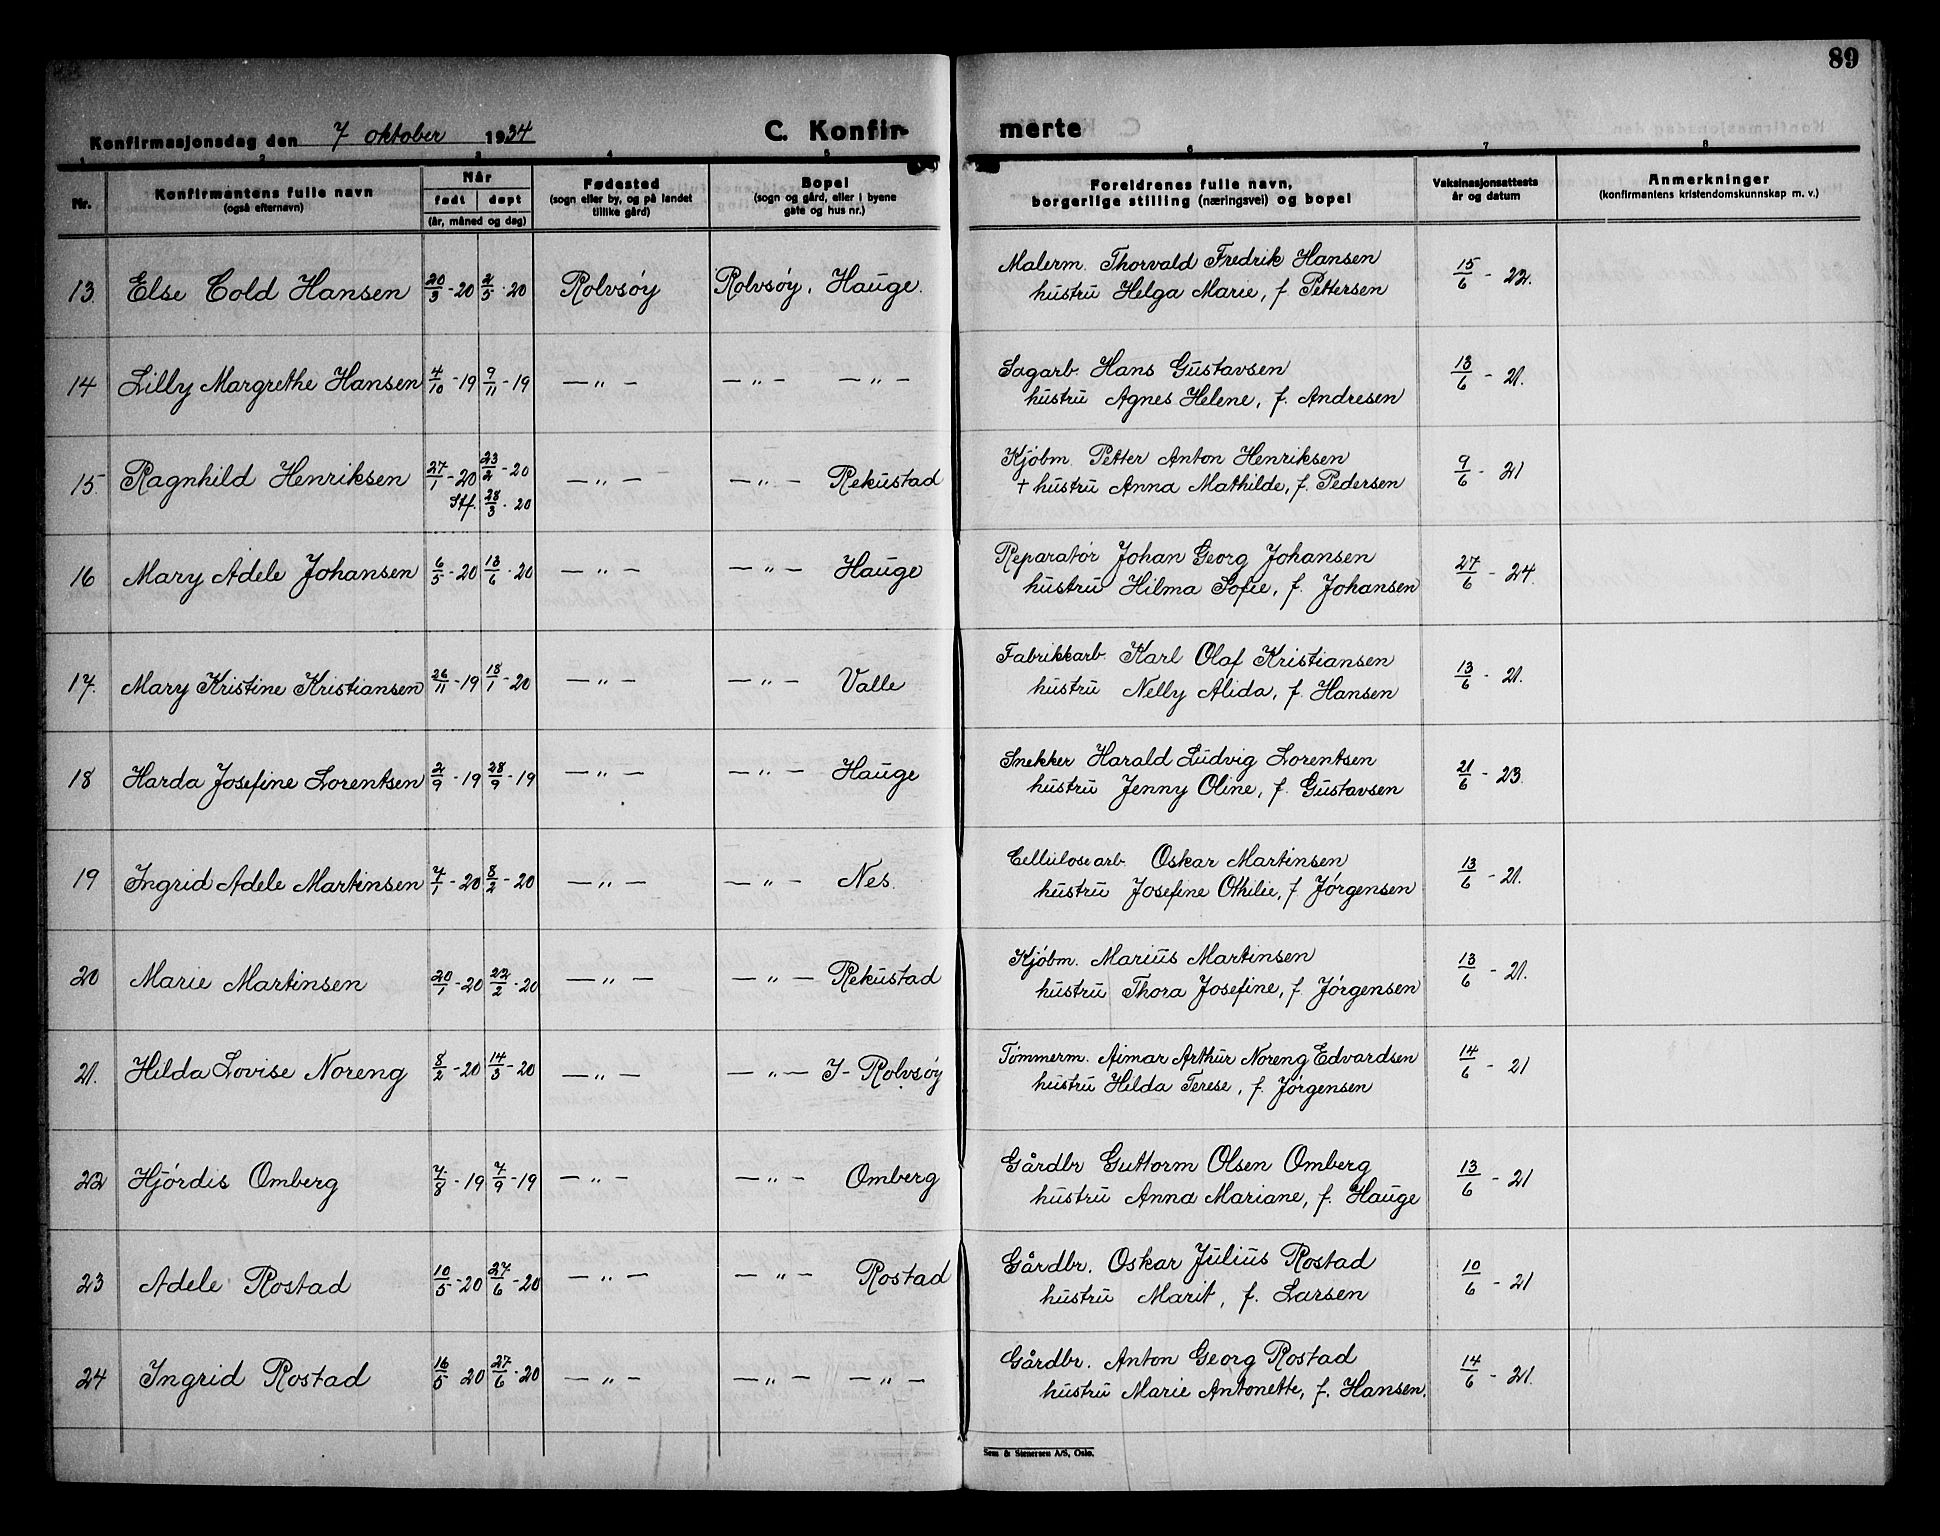 89
Konfirmasjonsdag den 7 oktober 1934
C. Konfir-
merte
1 2 3 4 5 6 7 8
Nr.
Konfirmantens fulle navn
(også efternavn)
Når
født døpt
(år, måned og dag)
Fødested
(sogn eller by, og på landet
tillike gård)
Bopel
(sogn og gård, eller i byene
gate og hus nr.)
Foreldrenes fulle navn,
borgerlige stilling (næringsvei) og bopel
Vaksinasjonsattests
år og datum
Anmerkninger
(konfirmantens kristendomskunnskap m. v.)
13. Else Cold Hansen 20/3 - 20 2/5 - 20 Rolvsøy Rolvsøy, Hauge. Malerm. Thorvald Fredrik Hansen 15/6 - 22.
hustru Helga Marie, f. Pettersen
14 Lilly Margrethe Hansen 4/10 - 19 9/11 - 19 — „ — — „ — — „ — Sagarb. Hans Gustavsen 13/6 - 21.
hustru Agnes Helene, f. Andresen
15. Ragnhild Henriksen 27/1 - 20 23/2 - 20 — „ — — „ — Rekustad Kjøbm. Petter Anton Henriksen 9/6 - 21
Stf. 28/3 - 20 + hustru Anna Mathilde, f. Pedersen
16 Mary Adele Johansen 6/5 - 20 13/6 - 20 — „ — — „ — Hauge Reparatør Johan Georg Johansen 27/6 - 24.
hustru Hilma Sofie, f. Johansen
17. Mary Kristine Kristiansen 26/11 - 19 18/1 - 20 — „ — — „ — Valle Fabrikkarb. Karl Olaf Kristiansen 13/6 - 21.
hustru Nelly Alida, f. Hansen
18 Harda Josefine Lorentsen 2/9 - 19 28/9 - 19 — „ — — „ — Hauge Snekker Harald Ludvig Lorentsen 21/6 - 23.
hustru Jenny Oline, f. Gustavsen
19 Ingrid Adele Martinsen 7/1 - 20 8/2 - 20 — „ — — „ — Nes. Cellulosearb. Oskar Martinsen 13/6 - 21.
hustru Josefine Othilie, f. Jørgensen
20 Marie Martinsen 20/1 - 20 22/2 - 20 — „ — — „ — Rekustad Kjøbm. Marius Martinsen 13/6 - 21.
hustru Thora Josefine, f. Jørgensen
21. Hilda Lovise Noreng 8/2 - 20 14/3 - 20 — „ — — „ — I- Rolvsøy Tømmerm. Aimar Arthur Noreng Edvardsen 14/6 - 21
hustru Hilda Terese, f. Jørgensen
22 Hjørdis Omberg 7/8 - 19 7/9 - 19 — „ — — „ — Omberg Gårdbr Guttorm Olsen Omberg 13/6 - 21
hustru Anna Mariane, f. Hauge
23 Adele Rostad 10/5 - 20 27/6 - 20 — „ — — „ — Rostad Gårdbr. Oskar Julius Rostad 10/6 - 21
hustru Marit, f. Larsen
24 Ingrid Rostad 16/5 20 27/6 - 20 — „ — — „ — — „ — Gårdbr. Anton Georg Rostad 14/6 - 21.
hustru Marie Antonette, f. Hansen.
Sem & Stenersen A/S, Oslo.